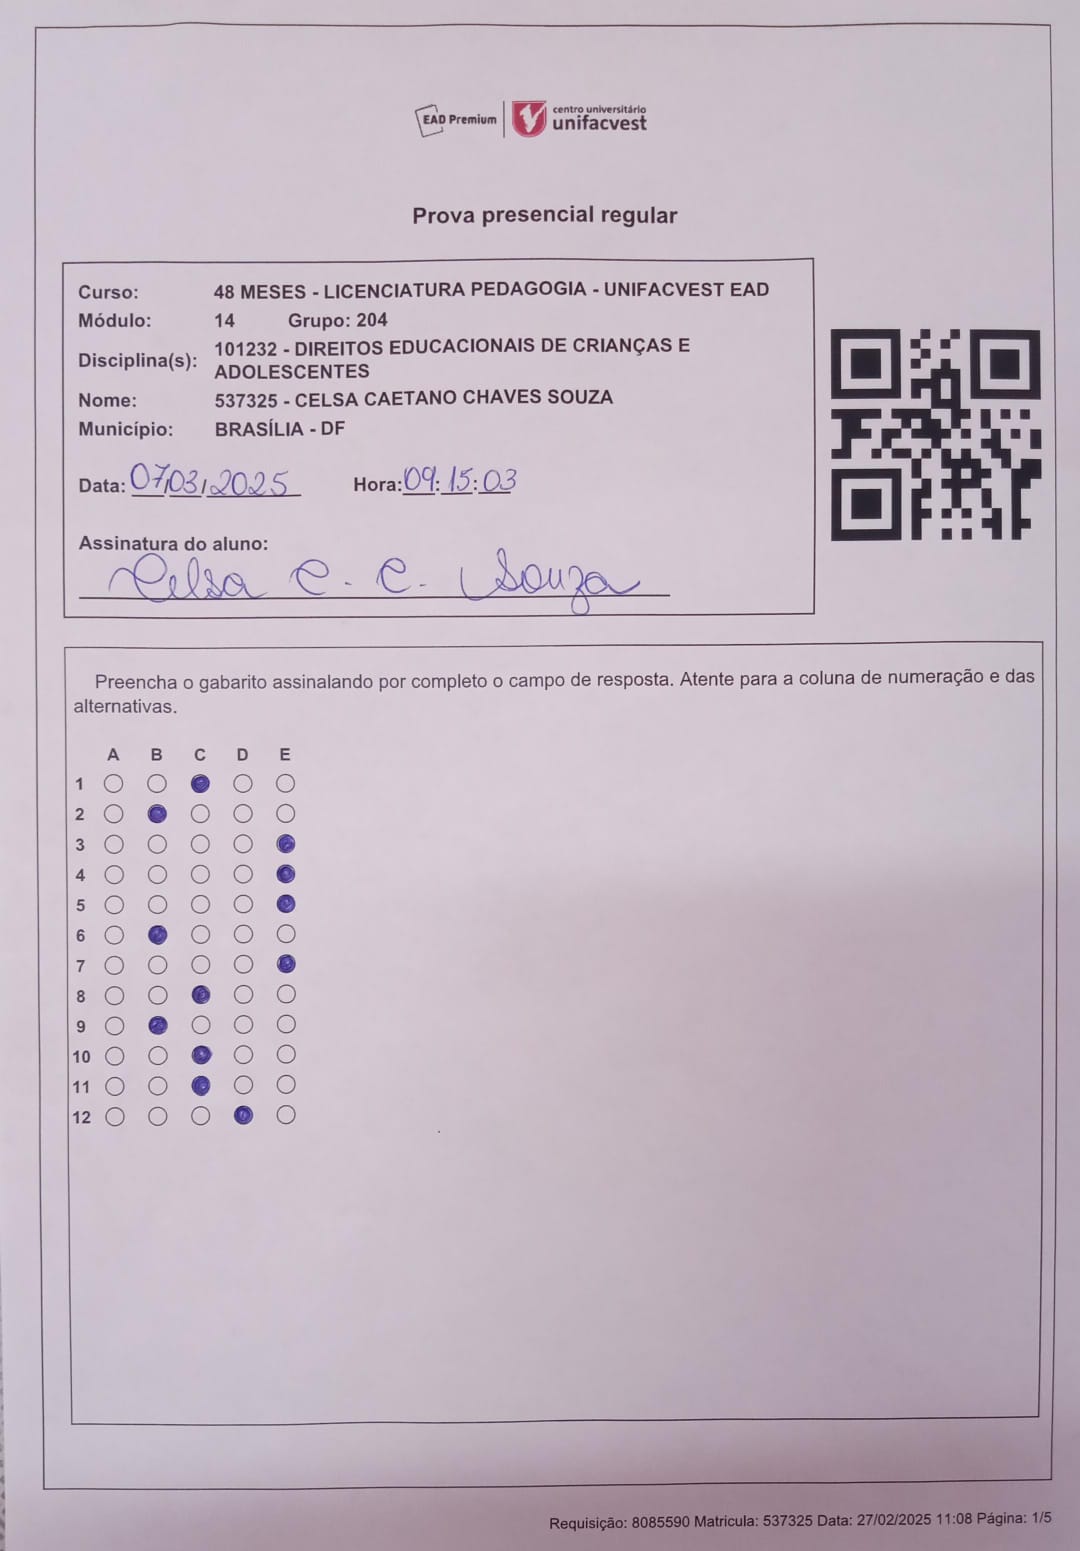 EAD Premium
centro universitário
unifacvest
Prova presencial regular
Curso: 48 MESES - LICENCIATURA PEDAGOGIA - UNIFACVEST EAD
Módulo: 14 Grupo: 204
Disciplina(s): 101232 - DIREITOS EDUCACIONAIS DE CRIANÇAS E
ADOLESCENTES
Nome: 537325 - CELSA CAETANO CHAVES SOUZA
Município: BRASÍLIA - DF
Data: 07/03/2025 Hora: 09:15:03
Assinatura do aluno:
Celsa C. C. Souza
Preencha o gabarito assinalando por completo o campo de resposta. Atente para a coluna de numeração e das
alternativas.
A B C D E
1
2
3
4
5
6
7
8
9
10
11
12
Requisição: 8085590 Matricula: 537325 Data: 27/02/2025 11:08 Página: 1/5